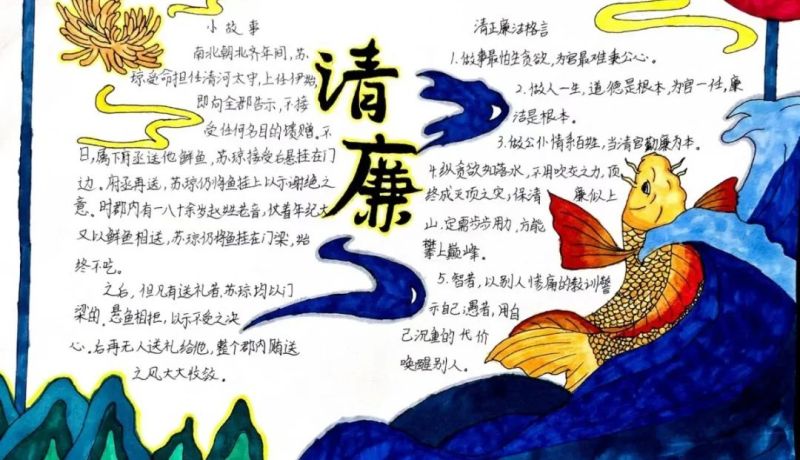 小故事
南北朝北齐年间,苏
琼受命担任清河太守,上任伊始,
即向全郡告示,不接
受任何名目的馈赠。不
日,属下府丞送他鲜鱼,苏琼接受后悬挂在门
边。府丞再送,苏琼仍将鱼挂上以示谢绝之
意。时郡内有一八十余岁赵姓老者,仗着年纪大
又以鲜鱼相送,苏琼仍将鱼挂在门梁,始
终不吃。
之后,但凡有送礼者,苏琼均以门
梁的悬鱼相拒,以示不受之决
心。后再无人送礼给他,整个郡内贿送
之风大大收敛。
请
廉
清正廉洁格言
1.做事最怕生贪欲,为官最难秉公心。
2.做人一生,道德是根本,为官一任,廉
洁是根本。
3.做公仆情系百姓,当清官勤廉为本。
4.纵贪欲如落水,不用吹灰之力,顶
终成灭顶之灾,保清 廉似上
山.定需步步用力,方能
攀上巅峰。
5.智者,以别人惨痛的教训警
示自己愚者,用自
己沉重的代价
唤醒别人。